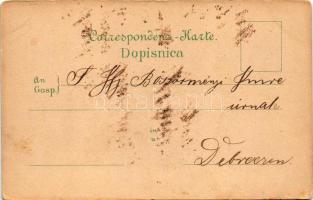 Correspondenz-Karte.
Dopisnica
An
Gosp.} T. Ifj. Böszörményi Imre
úrnak
in
u
Debreczen.